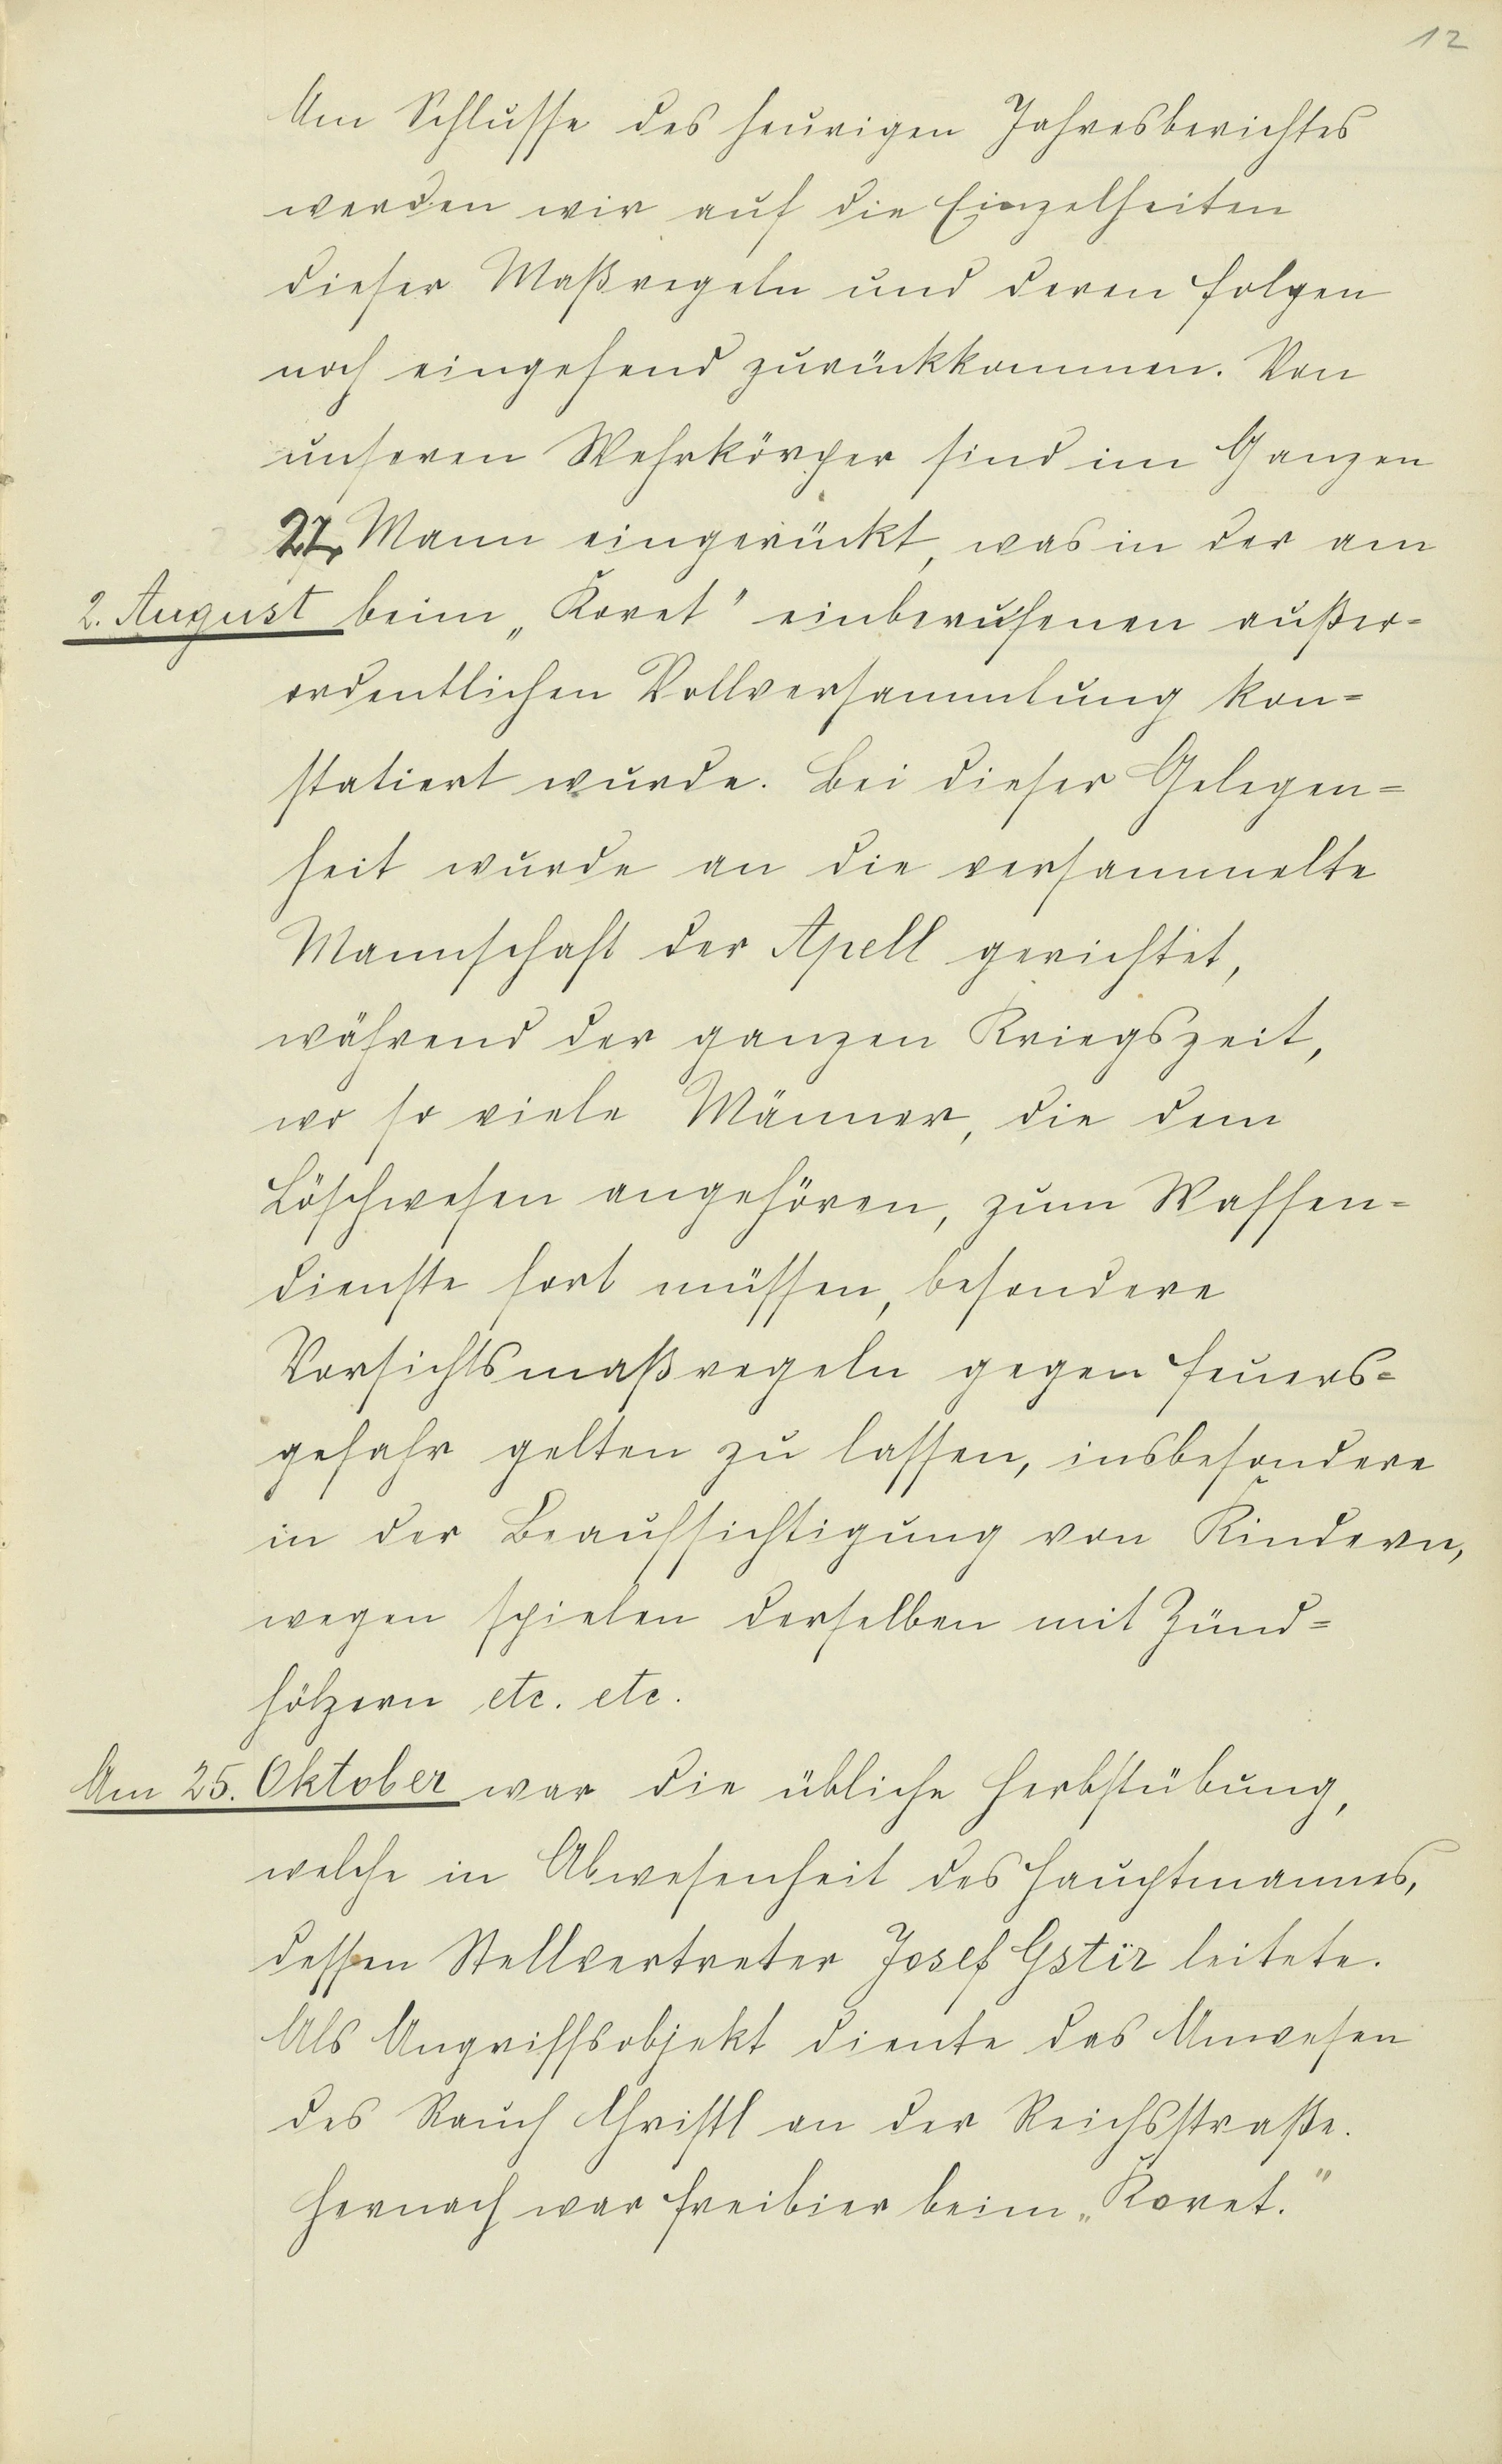 12
Am Schlusse des heurigen Jahresberichtes
werden wir auf die Einzelheiten
dieser Maßregeln und deren Folgen
noch eingehend zurückkommen. Von
unseren Wehrkörper sind im Ganzen
27 Mann eingerückt, was in der am
2. August beim „Koret" einberufenen außer=
ordentlichen Vollversammlung kon=
statiert wurde. Bei dieser Gelegen=
heit wurde an die versammelte
Mannschaft der Apell gerichtet,
während der ganzen Kriegszeit,
wo so viele Männer, die dem
Löschwesen angehören, zum Waffen=
dienste fort müssen, besondere
Vorsichtsmaßregeln gegen Feuers=
gefahr gelten zu lassen, insbesondere
in der Beaufsichtigung von Kindern,
wegen spielen derselben mit Zünd=
hölzern etc. etc.
Am 25. Oktober war die übliche Herbstübung,
welche in Abwesenheit des Hauptmannes,
dessen Stellvertreter Josef Gstir leitete.
Als Angriffsobjekt diente das Anwesen
des Rauch Christl an der Reichsstraße.
Hernach war Freibier beim „Koret."